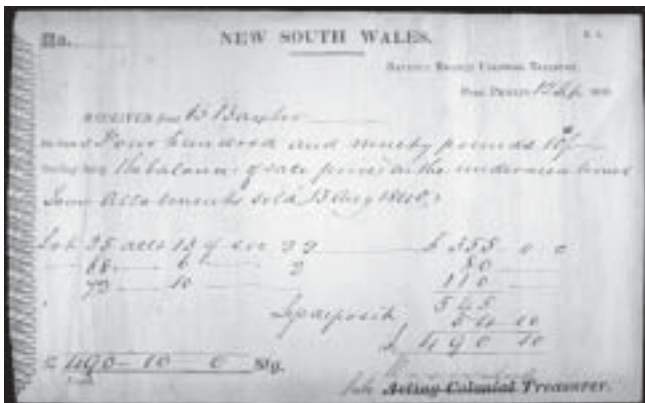 No.
NEW SOUTH WALES.
Branch Colonial Treasury,
Port Phillip 17 Sep
RECEIVED from B Baxter
the sum of Four hundred and ninety pounds 10/-
being the balance of sale price on the undermentioned
Town Allotments sold 13 Aug 1840
Lot 35 allt 13 of sec 22 £ 355 0 0
68 6 2 80
79 10 110
545
Less deposit 54 10
£ 490 10
£ 490 10 0 Stg.
Acting Colonial Treasurer.